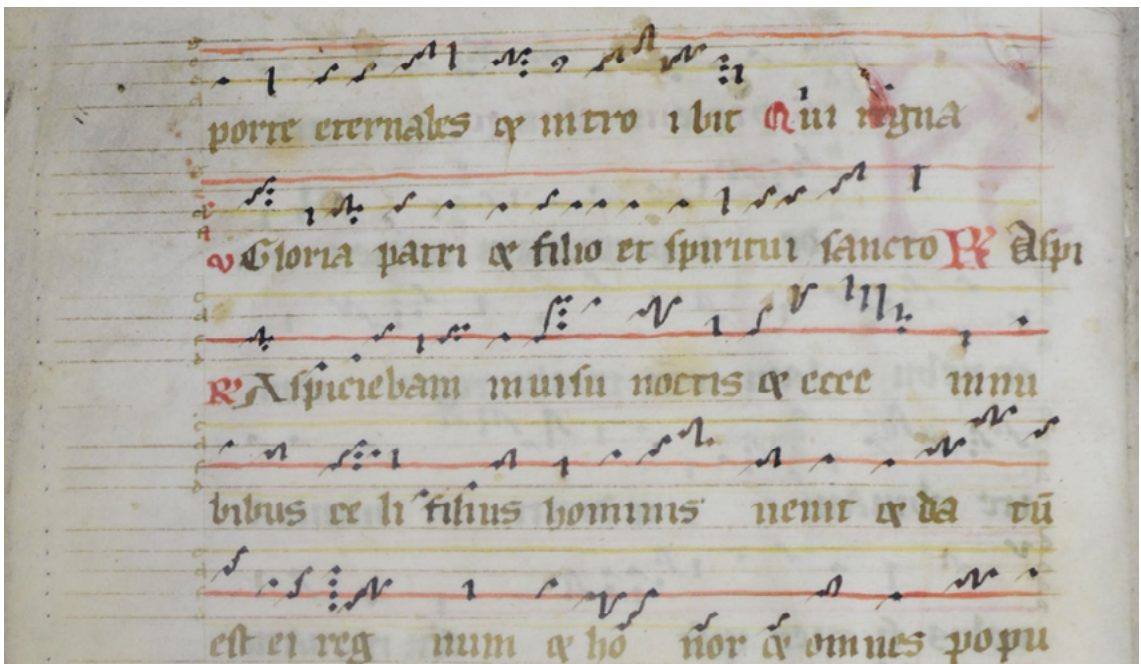 porte eternales & intro ibit Qui regna
v Gloria patri & filio et spiritui sancto R Aspi
R Aspiciebam in uisu noctis & ecce in nu
bibus ce li filius hominis uenit & da tū
est ei reg num & ho nor & omnes popu